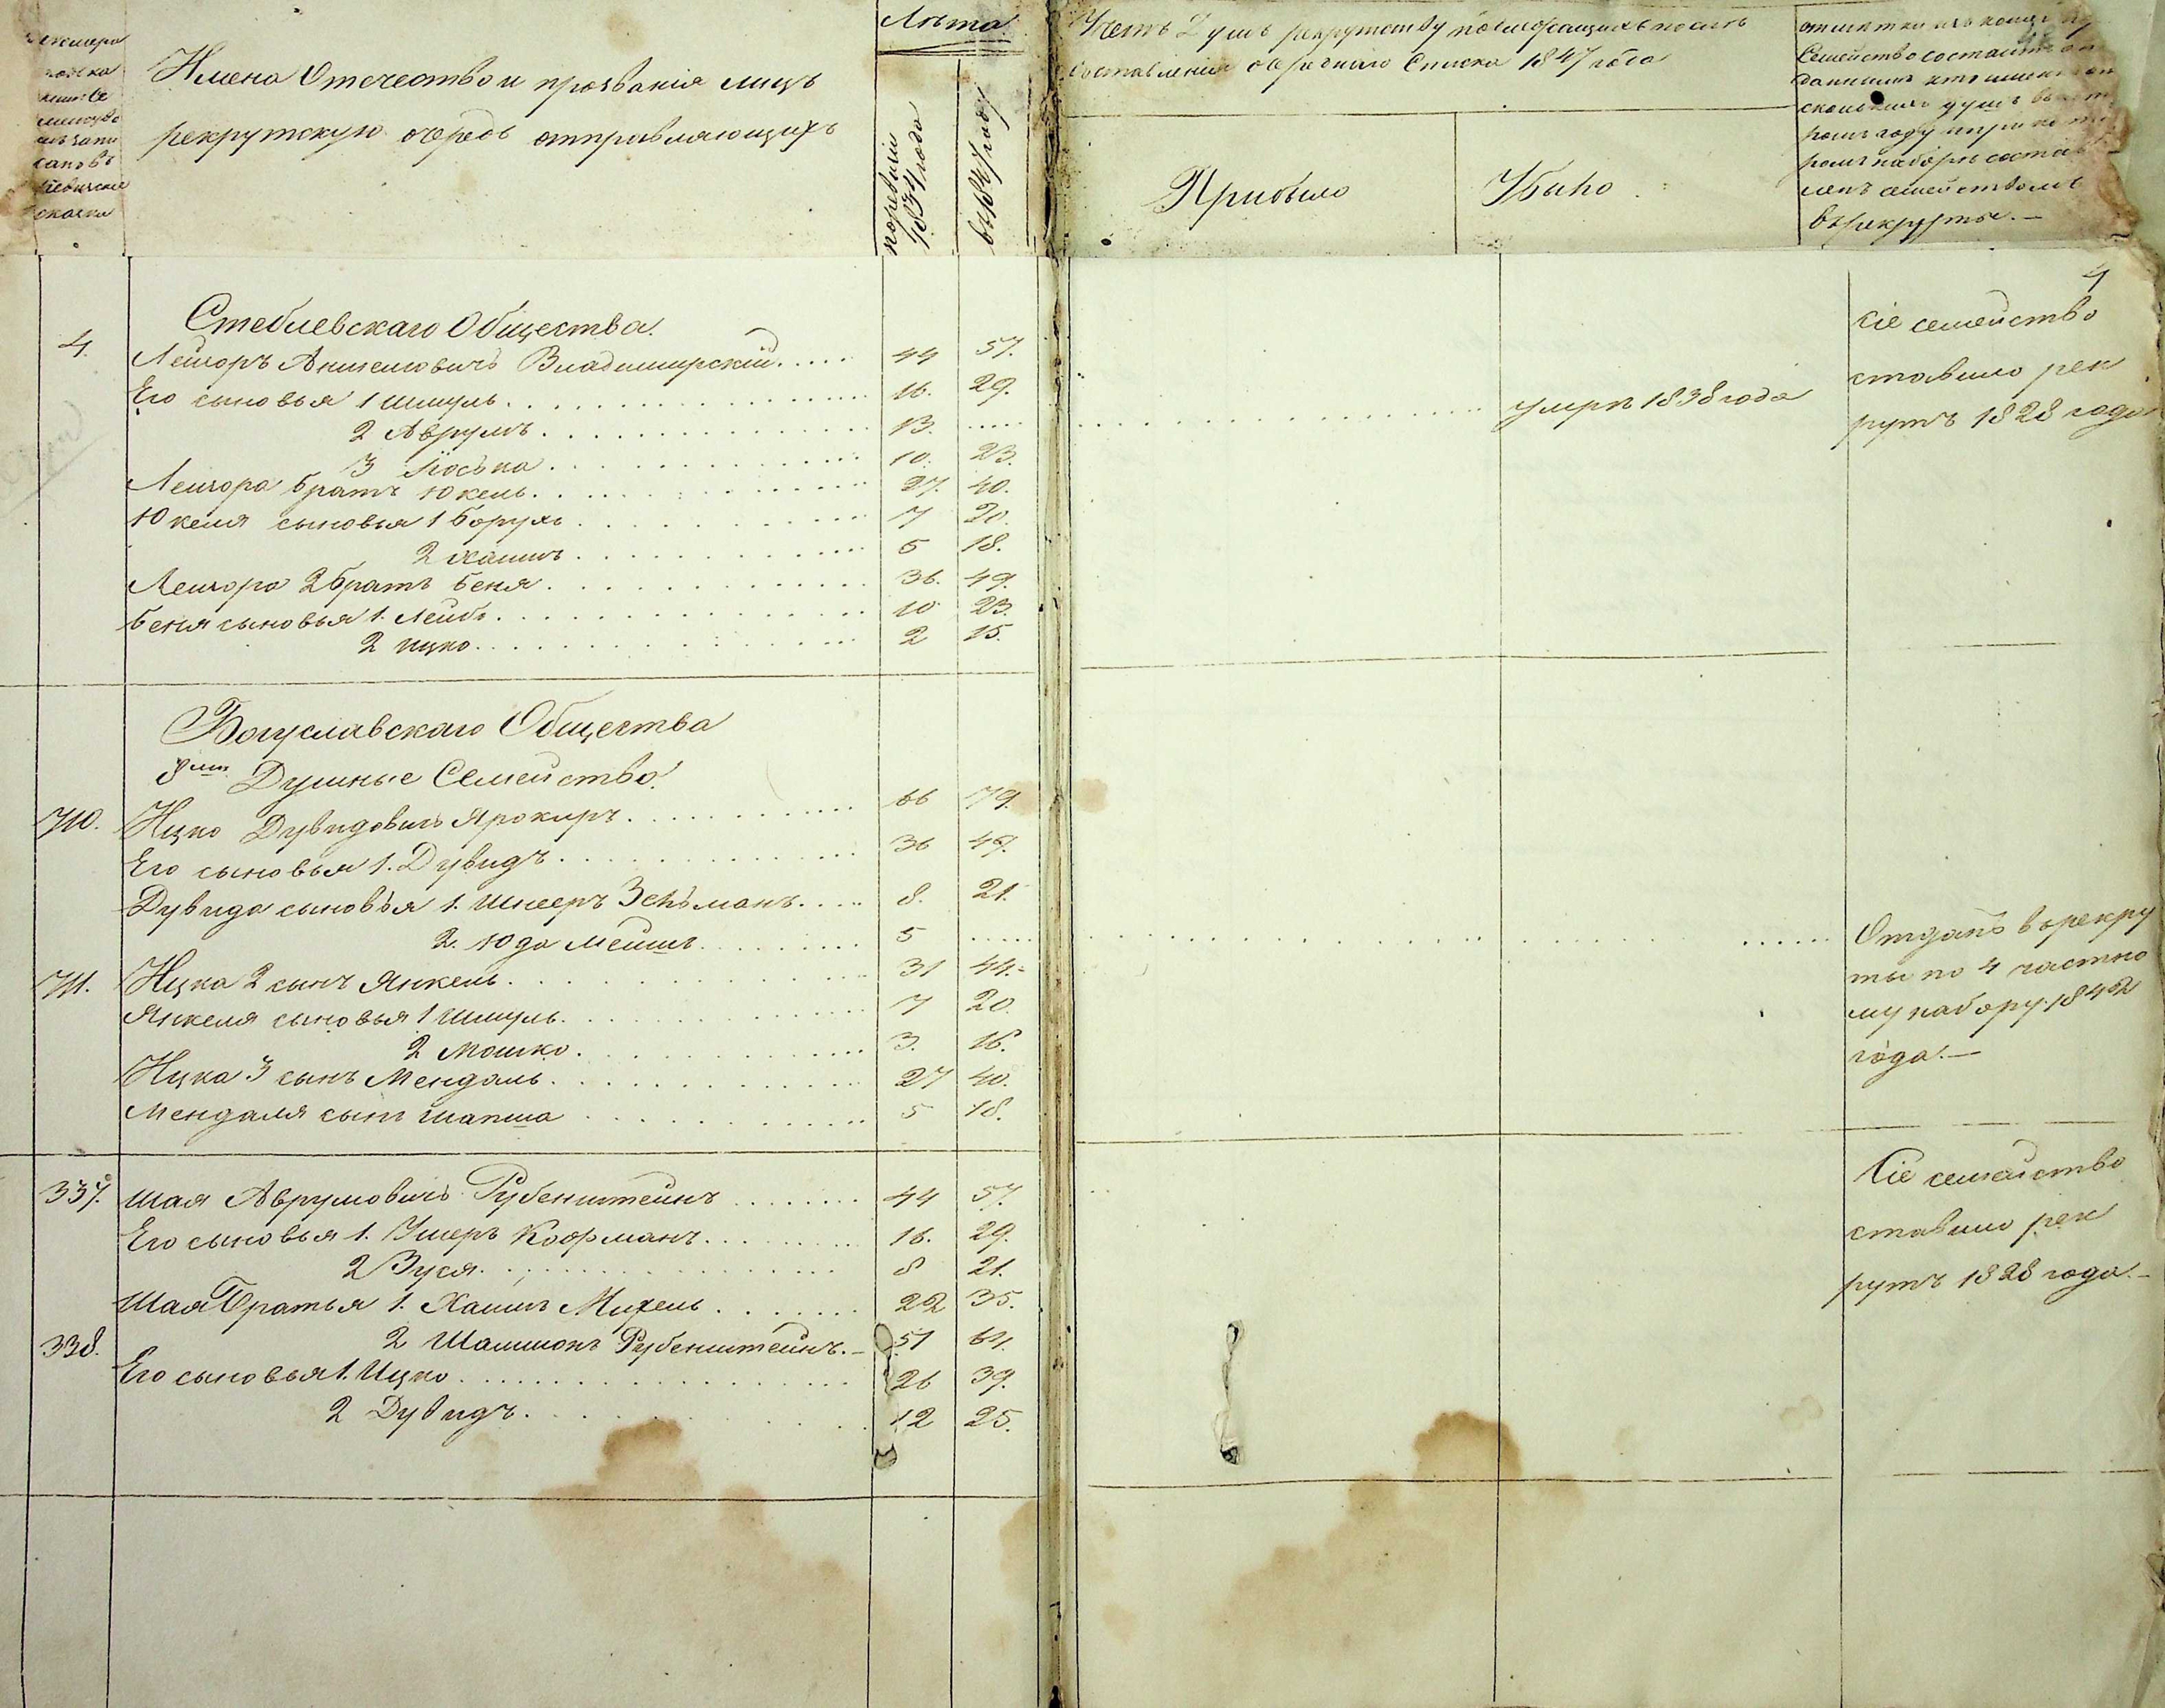 Имена Отечество и прозванія лицъ
рекрутскую очередь отправляющихъ
Лѣта
поревизіи 1834 года
въ 1847 году
Счетъ Душъ рекрутству послѣ
составленія очереднаго Списка 1847 года
Прибыло
Убыло
Семейство состоитъ
въ рекруты. —
4
Стеблевскаго Общества.
4. Лейзоръ Аншелювичъ Владимирскій..... 44 57.
Его сыновья 1 Шмуль. 16. 29.
2 Аврумъ. 13. ..... умръ 1838 года
3 Іоська. 10. 23.
Лейзора братъ Юкель. 27. 40.
Юкеля сыновья 1 Борухъ 7 20.
2 Хаимъ 5 18.
Лейзора 2 братъ Беня 36. 49.
Беня сыновья 1. Лейбъ 10 23.
2 Ицко. 2 15.
Сіе семейство
ставило рек
рутъ 1828 года
Богуславскаго Общества
8ми Душные Семейство.
710. Ицко Дувидовичъ Ярокиръ. 66 79.
Его сыновья 1. Дувидъ 36 49.
Дувида сыновья 1. Шнееръ Зельманъ..... 8. 21.
2. Юда Мейшъ. 5 .....
711. Ицка 2 сынъ Янкель. 31 44.
Янкеля сыновья 1 Шмуль. 7 20.
2 Мошко. 3. 16.
Ицка 3 сынъ Мендаль. 27 40.
Мендаля сынъ Шапша 5 18.
Отданъ в рекру
ты по 4 частно
му набору 1842
года. —
337. Шая Аврумовичъ Рубенштейнъ 44 57.
Его сыновья 1. Ушеръ Кофманъ. 16. 29.
2 Зуся. 8 21.
Шая Братья 1. Хаимъ Михель. 22 35.
338. 2 Шамшонъ Рубенштейнъ. — 51 64.
Его сыновья 1. Ицко 26 39.
2 Дувидъ. 12 25.
Сіе семейство
ставило рек
рутъ 1828 года. —